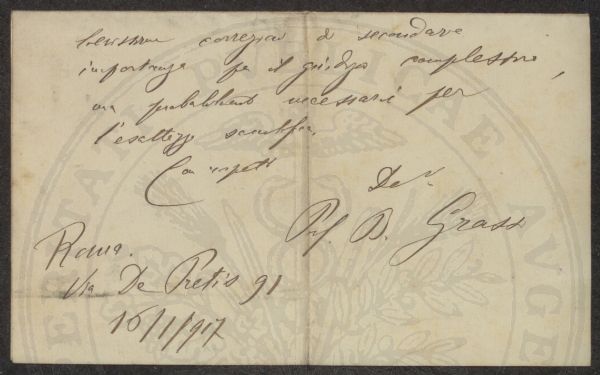 lievissime correzioni di secondaria
importanza per il giudizio complessivo,
ma probabilmente necessarie per
l'esattezza scientifica.
Con rispetto
Dev.
Prof. B. Grassi
Roma.
Via De Pretis 91
16/1/917